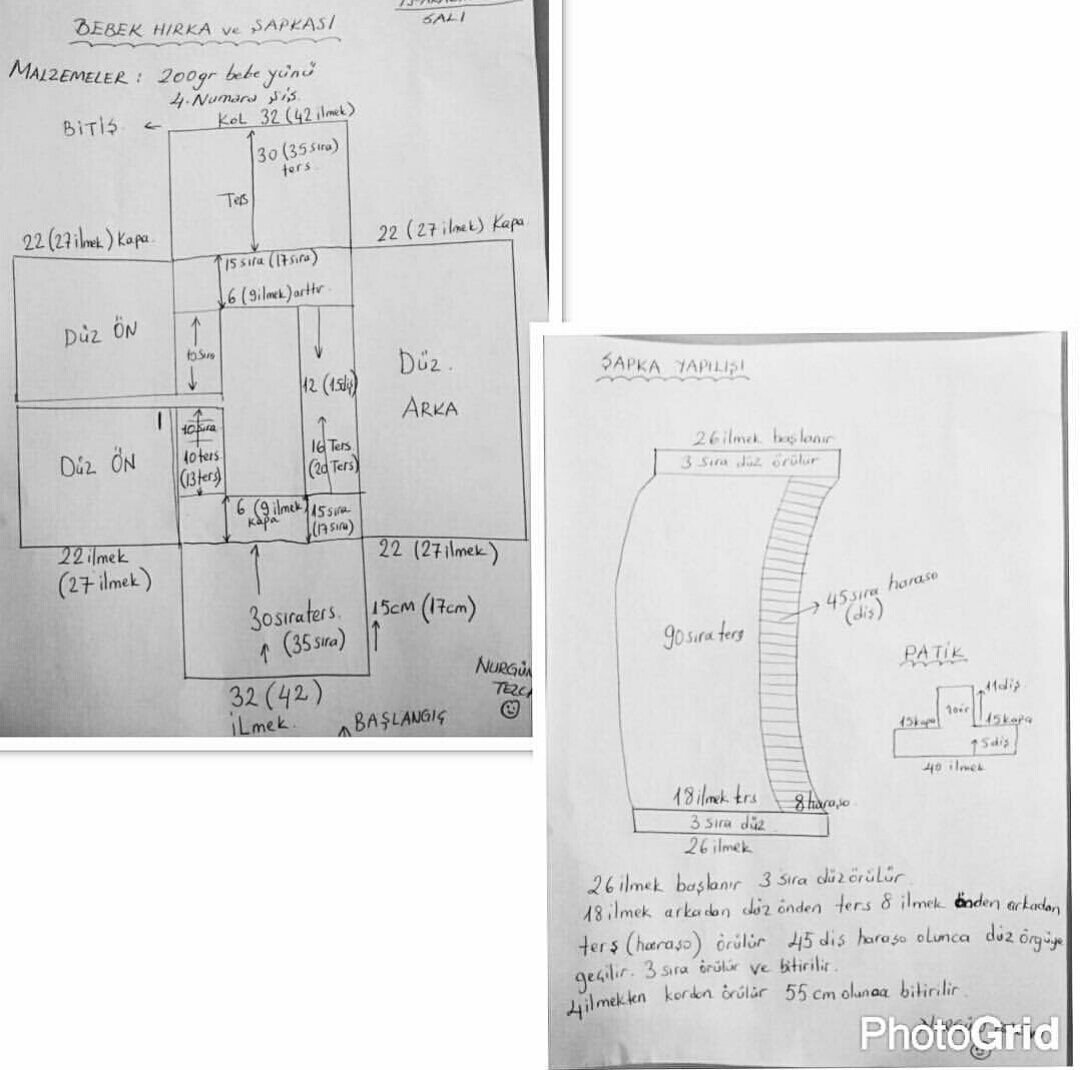 SALI
BEBEK HIRKA ve ŞAPKASI
MALZEMELER : 200gr bebe yünü
4. Numara şiş
BİTİŞ ←
KOL 32 (42 ilmek)
30 (35 sıra)
ters
Ters
22 (27 ilmek) Kapa.
22 (27 ilmek) Kapa.
15 sıra (17 sıra)
6 (9 ilmek) arttır
DÜZ ÖN
10 sıra
12 (15 diş)
DÜZ.
ARKA
DÜZ ÖN
10 sıra
10 ters
(13 ters)
16 Ters
(20 Ters)
6 (9 ilmek)
kapa
15 sıra
(17 sıra)
22 ilmek
(27 ilmek)
22 (27 ilmek)
30 sıra ters.
(35 sıra)
15cm (17cm)
32 (42)
ilmek.
BAŞLANGIÇ
NURGÜN
ŞAPKA YAPILIŞI
26 ilmek başlanır
3 sıra düz örülür
90 sıra ters
45 sıra haraşo
(diş)
18 ilmek trs
8 haraşo.
3 sıra düz
26 ilmek
PATİK
11 diş
15 kapa
15 kapa
5 diş
40 ilmek
26 ilmek başlanır 3 sıra düz örülür.
18 ilmek arkadan düz önden ters 8 ilmek önden arkadan
ters (haraşo) örülür 45 diş haraşo olunca düz örgüye
geçilir. 3 sıra örülür ve bitirilir.
4 ilmekten kordon örülür 55 cm olunca bitirilir.
PhotoGrid